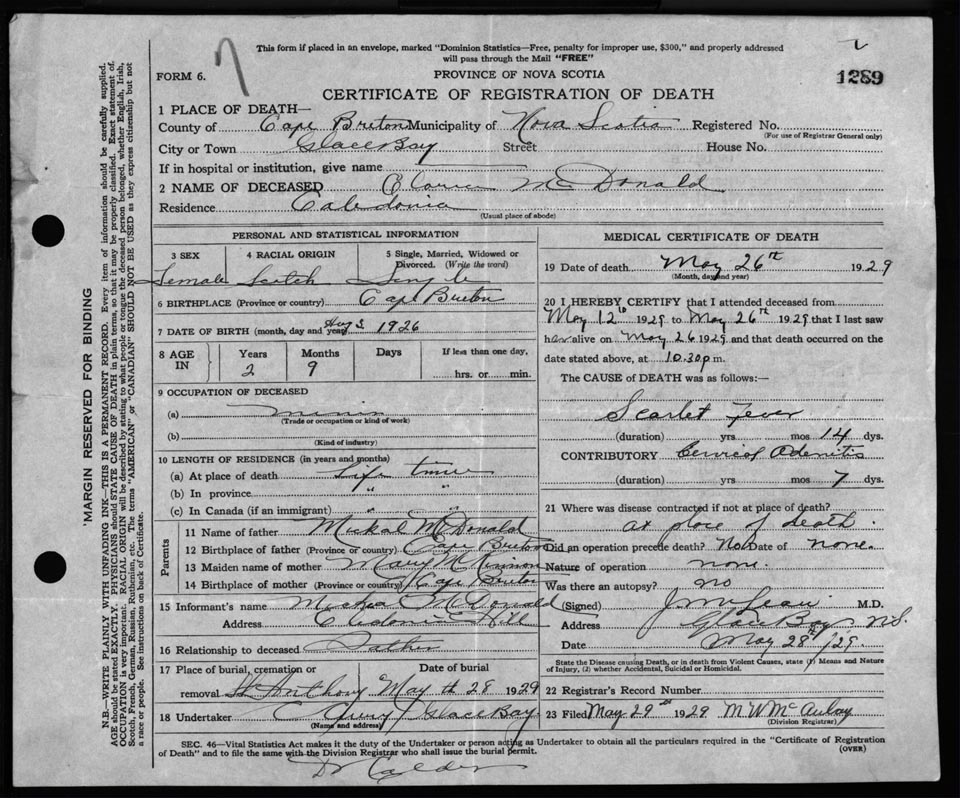 This form if placed in an envelope, marked "Dominion Statistics—Free, penalty for improper use, $300," and properly addressed
will pass through the Mail "FREE"
7
FORM 6.
PROVINCE OF NOVA SCOTIA
1289
CERTIFICATE OF REGISTRATION OF DEATH
1 PLACE OF DEATH—
County of Cape Breton Municipality of Nova Scotia Registered No.
(For use of Registrar General only)
City or Town Glace Bay Street House No.
If in hospital or institution, give name
2 NAME OF DECEASED McDonald
Residence Caledonia
(Usual place of abode)
PERSONAL AND STATISTICAL INFORMATION
3 SEX 4 RACIAL ORIGIN 5 Single, Married, Widowed or Divorced. (Write the word)
Female Scotch Single
6 BIRTHPLACE (Province or country) Cape Breton
7 DATE OF BIRTH (month, day and year) Aug 3 1926
8 AGE IN Years Months Days If less than one day,
2 9 hrs. or min.
9 OCCUPATION OF DECEASED
(a)
(Trade or occupation or kind of work)
(b)
(Kind of industry)
10 LENGTH OF RESIDENCE (in years and months)
(a) At place of death Life time
(b) In province " "
(c) In Canada (if an immigrant) " "
Parents
11 Name of father Mickal McDonald
12 Birthplace of father (Province or country) Cape Breton
13 Maiden name of mother Mary McKinnon
14 Birthplace of mother (Province or country) Cape Breton
15 Informant's name McDonald
Address Hill
16 Relationship to deceased Father
17 Place of burial, cremation or removal Date of burial
St Anthony May 28 1929
18 Undertaker Glace Bay
(Name and address)
MEDICAL CERTIFICATE OF DEATH
19 Date of death May 26th 1929
(Month, day and year)
20 I HEREBY CERTIFY that I attended deceased from
May 12th 1929 to May 26th 1929 that I last saw
her alive on May 26 1929 and that death occurred on the
date stated above, at 10.30 p.m.
The CAUSE of DEATH was as follows:—
Scarlet Fever
(duration) yrs mos 14 dys.
CONTRIBUTORY Cervical Adenitis
(duration) yrs mos 7 dys.
21 Where was disease contracted if not at place of death?
at place of death.
Did an operation precede death? No Date of none.
Nature of operation none.
Was there an autopsy? no
(Signed) M.D.
Address Glace Bay N.S.
Date May 28th/29.
State the Disease causing Death, or in death from Violent Causes, state (1) Means and Nature
of Injury, (2) whether Accidental, Suicidal or Homicidal.
22 Registrar's Record Number
23 Filed May 29th 1929 M W McAulay
(Division Registrar)
SEC. 46—Vital Statistics Act makes it the duty of the Undertaker or person acting as Undertaker to obtain all the particulars required in the "Certificate of Registration
of Death" and to file the same with the Division Registrar who shall issue the burial permit. (OVER)
Dr Calder
MARGIN RESERVED FOR BINDING
N.B.—WRITE PLAINLY WITH UNFADING INK—THIS IS A PERMANENT RECORD. Every item of information should be carefully supplied.
AGE should be stated EXACTLY. PHYSICIANS should STATE CAUSE OF DEATH in plain terms, so that it may be properly classified. Exact statement of
OCCUPATION is very important. RACIAL ORIGIN will be described by stating to what people or tongue the deceased person belonged, whether English, Irish,
Scotch, French, German, Russian, Ruthenian, etc. The terms "AMERICAN" or "CANADIAN" SHOULD NOT BE USED as they express citizenship but not
a race or people. See instructions on back of Certificate.